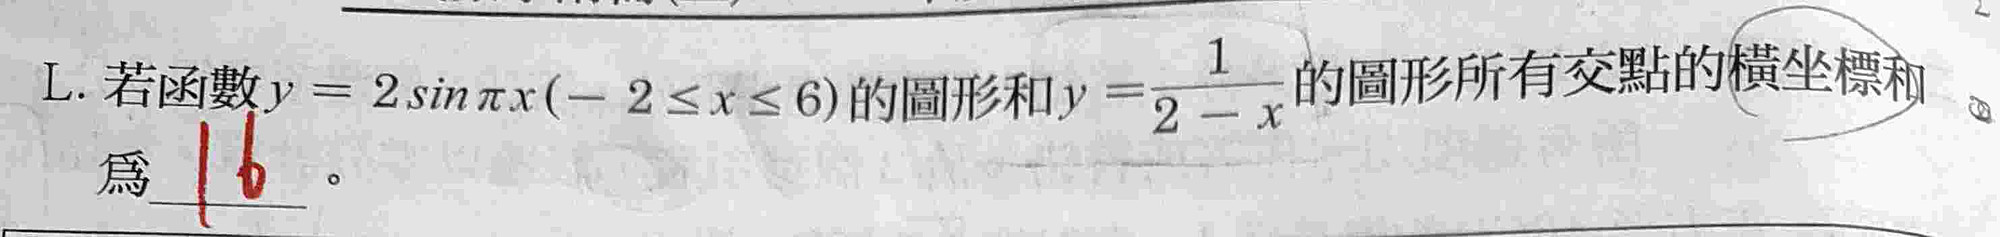 L. 若函數y = 2sinπx(− 2 ≤ x ≤ 6)的圖形和y = 1/(2 − x)的圖形所有交點的橫坐標和
為 16 。